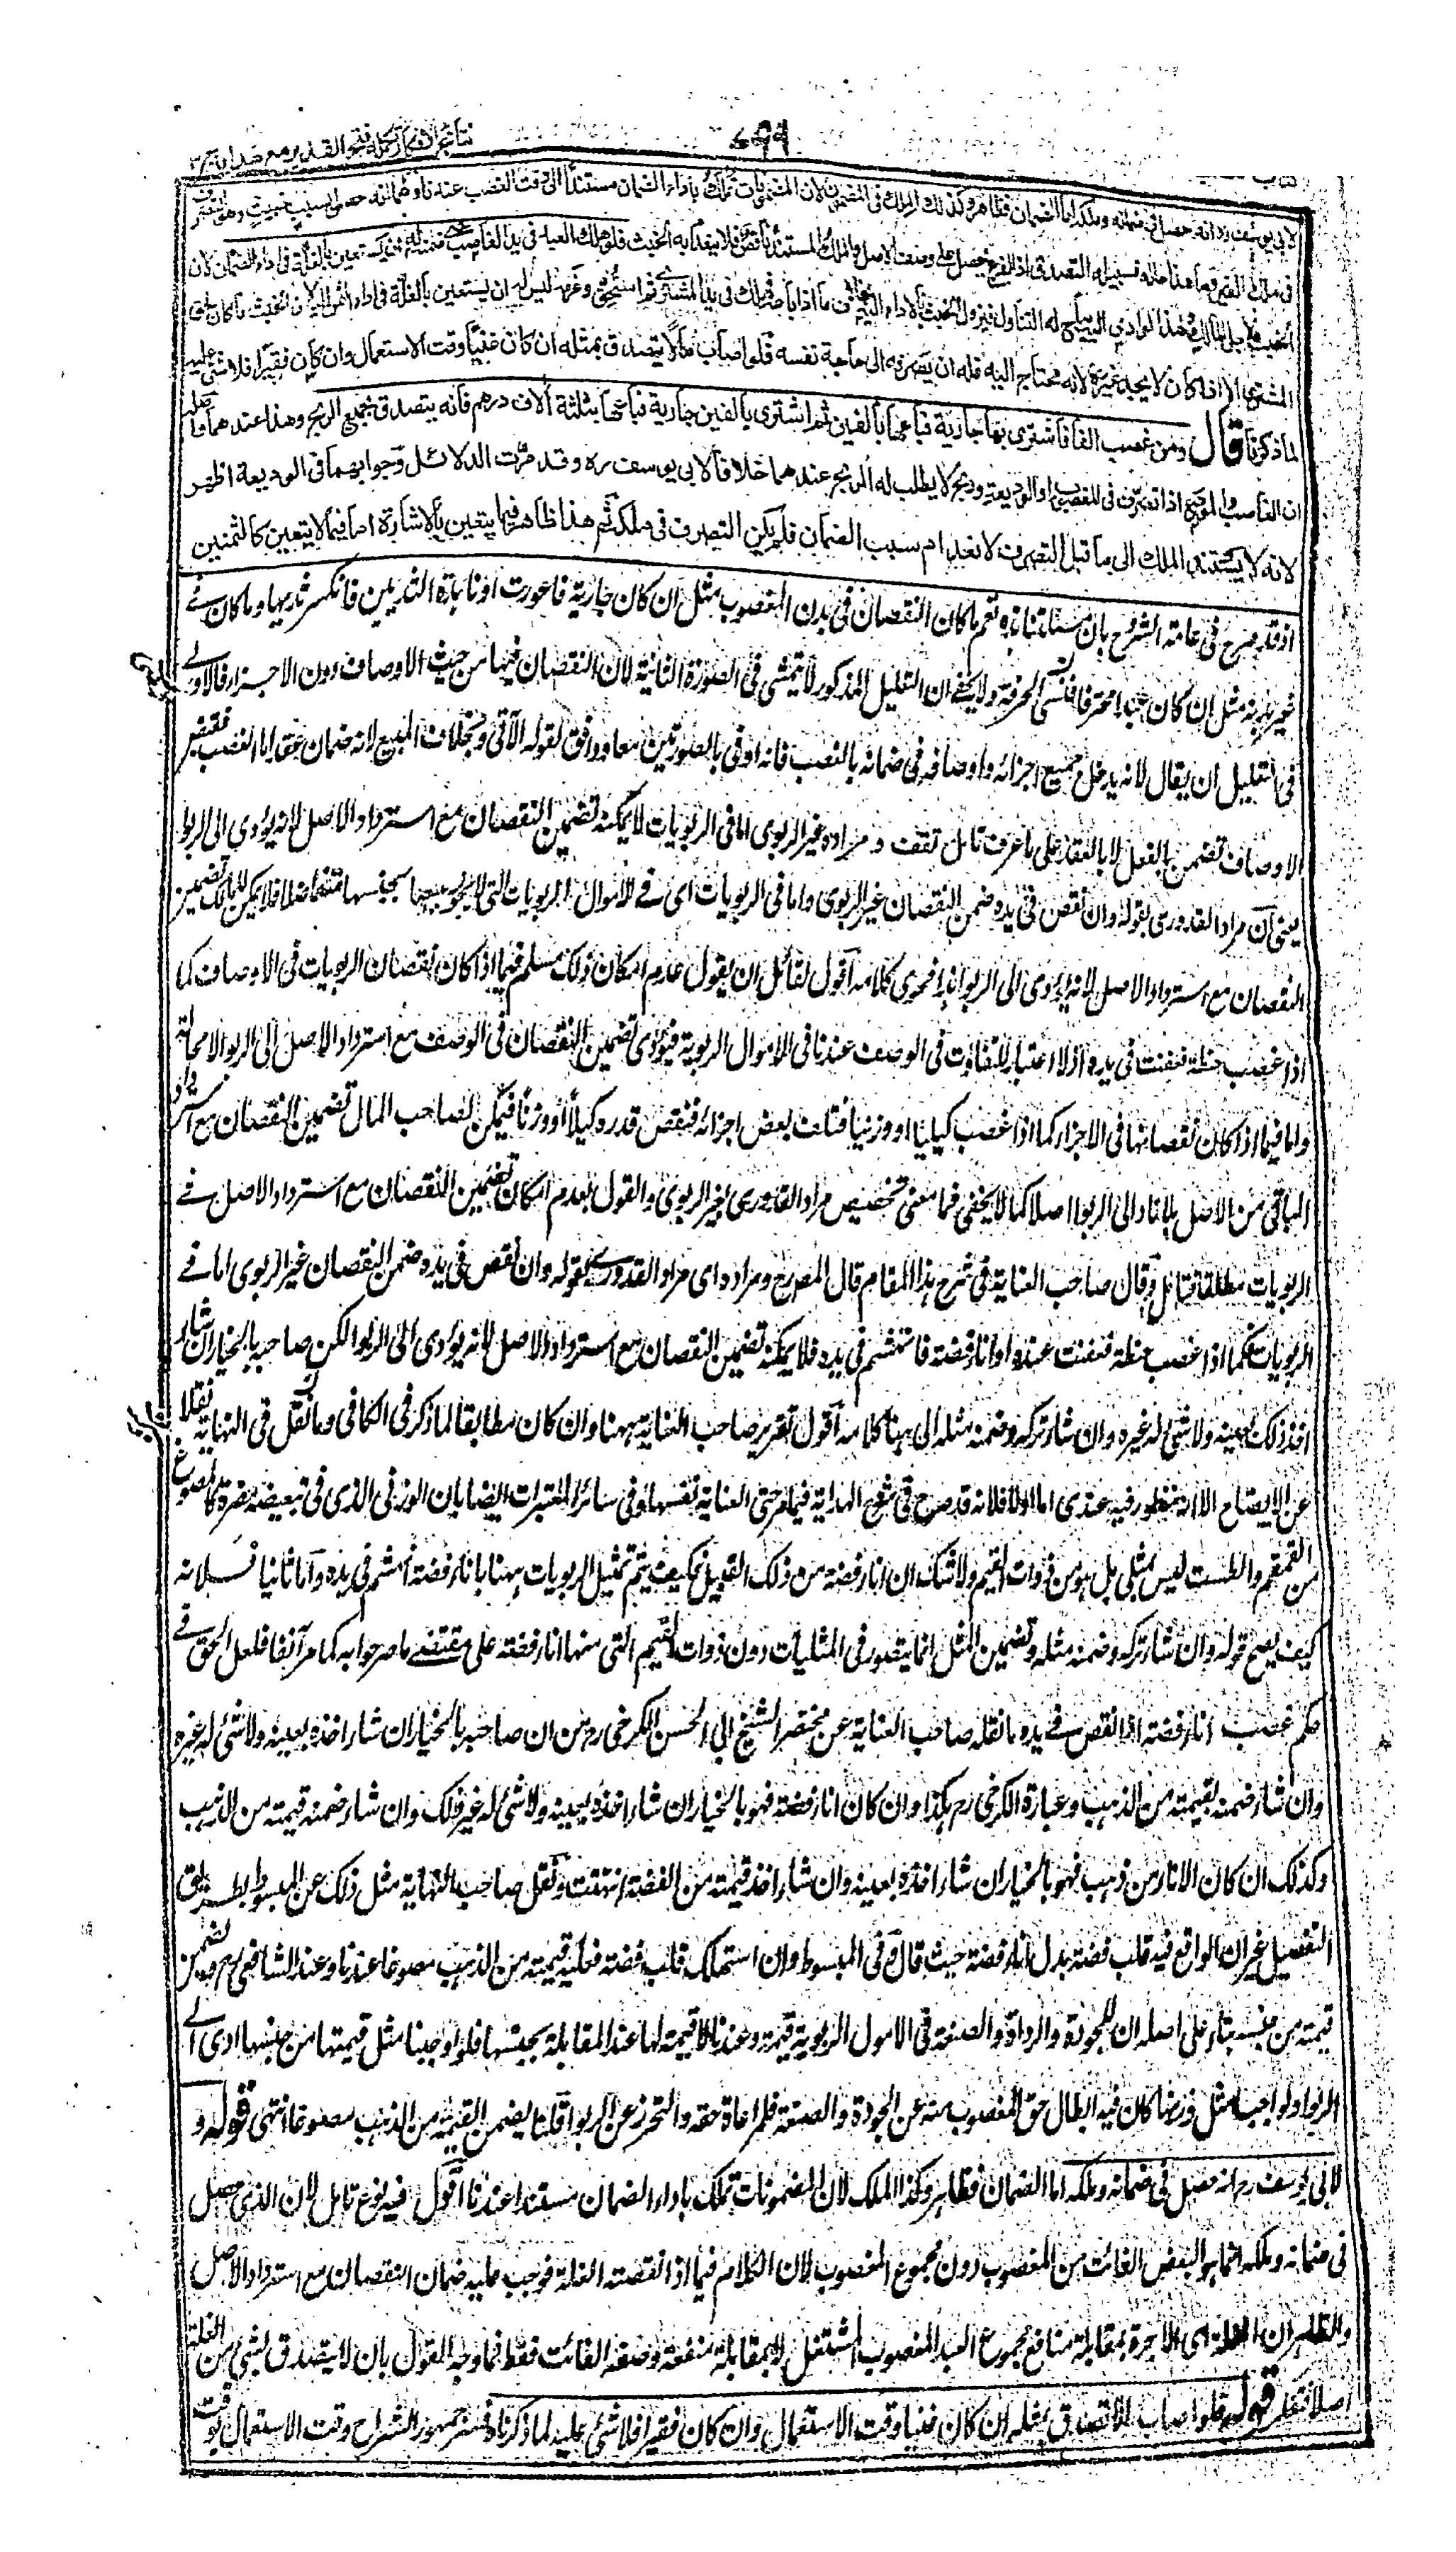 نتائج الافكار تكملة فتح القدير مع هداية ج ٣
٧٩٩
لابي يوسف رہ انه حصل في ضمانه وملكه اما الضمان فظاهر وكذلك الملك في المضمون لان المضمونات تملك باداء الضمان مستندا الى وقت الغصب عندنا ولهما انه حصل بسبب خبيث وهو التصرف
في ملك الغير وما هذا حاله فسبيله التصدق اذ الفرع يحصل على وصف الاصل والملك المستند ناقص فلا ينعدم به الخبث فلو هلك العبد في يد الغاصب حتى ضمنه له ان يستعين بالغلة في اداء الضمان لان
الخبث لاجل المالك ولهذا لو ادى اليه يباح له التناول فيزول الخبث بالاداء اليه بخلاف ما اذا باعه فهلك في يد المشتري ثم استحق وغرمه ليس له ان يستعين بالغلة في اداء الثمن اليه لان الخبث ما كان لحق
المشتري الا اذا كان لا يجد غيره لانه محتاج اليه فله ان يصرفه الى حاجة نفسه فلو اصاب مالا يتصدق بمثله ان كان غنيا وقت الاستعمال وان كان فقيرا فلا شئ عليه
لما ذكرنا قال ومن غصب الفا فاشترى بها جارية فباعها بالفين ثم اشترى بالفين جارية فباعها بثلثة الاف درهم فانه يتصدق بجميع الربح وهذا عندهما واصله
ان الغاصب والمودع اذا تصرف في المغصوب او الوديعة وربح لا يطلب له الربح عندهما خلافا لابي يوسف ره وقد مرت الدلائل وجوابهما في الوديعة اظهر
لانه لا يستند الملك الى ما قبل التصرف لانعدام سبب الضمان فلم يكن التصرف في ملكه ثم هذا ظاهر فيما يتعين بالاشارة اما فيما لا يتعين كالثمنين
اذ قد صرح في عامة الشروح بان مسئلتنا هذه تعم ما كان النقصان في بدن المغصوب مثل ان كان جارية فاعورت او ناهدة الثديين فانكسر ثديها وما كان في
غير بدنه مثل ان كان عبدا محترفا فنسي الحرفة ولا يخفى ان التعليل المذكور لا يتمشى في الصورة الثانية لان النقصان فيها من حيث الاوصاف دون الاجزاء فالاولى
في التعليل ان يقال لانه يدخل جميع اجزائه واوصافه في ضمانه بالغصب فانه اوفى بالصورتين معا ووافق لقوله الآتي وبخلاف المبيع لانه ضمان عقد اما الغصب فقبض
الاوصاف تضمن بالفعل لا بالعقد على ما عرف تامل تقف و مراده غير الربوي اما في الربويات لا يمكنه تضمين النقصان مع استرداد الاصل لانه يؤدي الى الربوا
يعني ان مراد القدوري بقوله وان نقص في يده ضمن النقصان غير الربوي واما في الربويات اي في الاموال الربويات التي لا يجوز بيعها بجنسها متفاضلا فلا يمكن للمالك تضمين
النقصان مع استرداد الاصل لانه يؤدي الى الربوا هذا فحوى كلامه اقول لقائل ان يقول عدم امكان ذلك مسلم فيما اذا كان نقصان الربويات في الاوصاف كما
اذا غصب حنطة فعفنت في يده اذ لا اعتبار للتفاوت في الوصف عندنا في الاموال الربوية فيؤدي تضمين النقصان في الوصف مع استرداد الاصل الى الربوا لا محالة
واما فيما اذا كان نقصانها في الاجزاء كما اذا غصب كيليا او وزنيا فتلف بعض اجزائه فنقص قدره كيلا او وزنا فيمكن لصاحب المال تضمين النقصان مع استرداد
الباقي من الاصل بلا تاد الى الربوا اصلا كما لا يخفى فما معنى تخصيص مراد القدوري بغير الربوي والقول بعدم امكان تضمين النقصان مع استرداد الاصل في
الربويات مطلقا فتامل وقال صاحب العناية في شرح هذا المقام قال المصرح ومراده اي مراد القدوري بقوله وان نقص في يده ضمن النقصان غير الربوي اما في
الربويات كما اذا غصب حنطة فعفنت عنده او اناء فضة فانهشم في يده فلا يمكنه تضمين النقصان مع استرداد الاصل لانه يؤدي الى الربوا لكن صاحبه بالخيار ان شاء
اخذ ذلك بعينه ولا شئ له غيره وان شاء تركه وضمنه مثله الى هنا كلامه اقول تقرير صاحب العناية ههنا وان كان مطابقا لما ذكر في الكافي وما نقل في النهاية نقلا
عن الايضاح الا انه منظور فيه عندي اما اولا فلانه قد صرح في شروح الهداية فيما مر حتى العناية نفسها وفي سائر المعتبرات ايضا بان الوزني الذي في تبعيضه مضرة كالمصوغ
من القمقم والطست ليس بمثلي بل هو من ذوات القيم ولا شك ان اناء فضة من ذلك القبيل فكيف يتم تمثيل الربويات ههنا باناء فضة انهشم في يده واما ثانيا فلانه
كيف يصح قوله وان شاء تركه وضمنه مثله وتضمين المثل انما يتصور في المثليات دون ذوات القيم التي منها اناء فضة على مقتضى ما صرحوا به كما مر آنفا فلعل الحق في
حكم غصب اناء فضة اذا نقص في يده ما نقله صاحب العناية عن مختصر الشيخ ابي الحسن الكرخي رح من ان صاحبه بالخيار ان شاء اخذه بعينه ولا شئ له غيره
وان شاء ضمنه بقيمته من الذهب وعبارة الكرخي رح هكذا وان كان اناء فضة فهو بالخيار ان شاء اخذه بعينه ولا شئ له غير ذلك وان شاء ضمنه قيمته من الذهب
وكذلك ان كان الاناء من ذهب فهو بالخيار ان شاء اخذه بعينه وان شاء اخذ قيمته من الفضة انتهت ونقل صاحب النهاية مثل ذلك عن المبسوط بطريق
التفصيل غير ان الواقع فيه قلب فضة بدل اناء فضة حيث قال وفي المبسوط وان استهلك قلب فضة فعليه قيمته من الذهب مصوغا عندنا وعند الشافعي رح يضمن
قيمته من جنسه بناء على اصله ان للجودة والرداءة والصنعة في الاموال الربوية قيمة وعندنا لا قيمة لها عند المقابلة بجنسها فلو اوجبنا مثل قيمتها من جنسها ادى الى
الربوا ولو اوجبنا مثل وزنها كان فيه ابطال حق المغصوب منه عن الجودة والصنعة فلمراعاة حقه والتحرز عن الربوا قلنا يضمن القيمة من الذهب مصوغا انتهى قوله و
لابي يوسف رح انه حصل في ضمانه وملكه اما الضمان فظاهر وكذا الملك لان المضمونات تملك باداء الضمان مستندا عندنا اقول فيه نوع تامل لان الذي حصل
في ضمانه وملكه انما هو البعض الفائت من المغصوب دون مجموع المغصوب لان الكلام فيما اذا نقصته الغلة فوجب عليه ضمان النقصان مع استرداد الاصل
والظاهر ان الغلة اي الاجرة بمقابلة منافع مجموع العبد المغصوب المشتغل لا بمقابلة منفعة وصفه الفائت فقط فما وجه القول بان لا يتصدق بشئ من الغلة
اصلا فتفكر قوله فلو اصاب مالا تصدق بمثله ان كان غنيا وقت الاستعمال وان كان فقيرا فلا شئ عليه لما ذكرنا فسر جمهور الشراح وقت الاستعمال بوقت